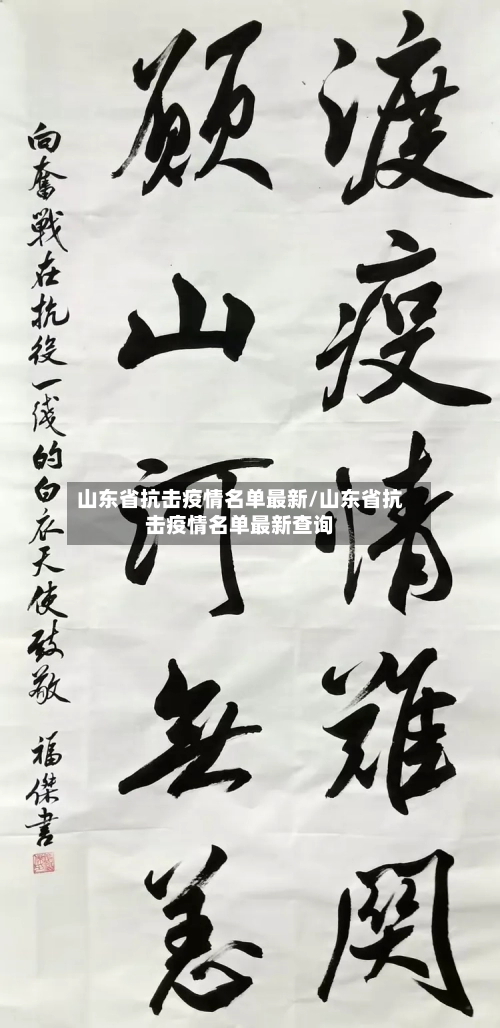 渡疫情難関
願山河無恙
向奮戰在抗疫一线的白衣天使致敬
福傑書
山东省抗击疫情名单最新/山东省抗
击疫情名单最新查询